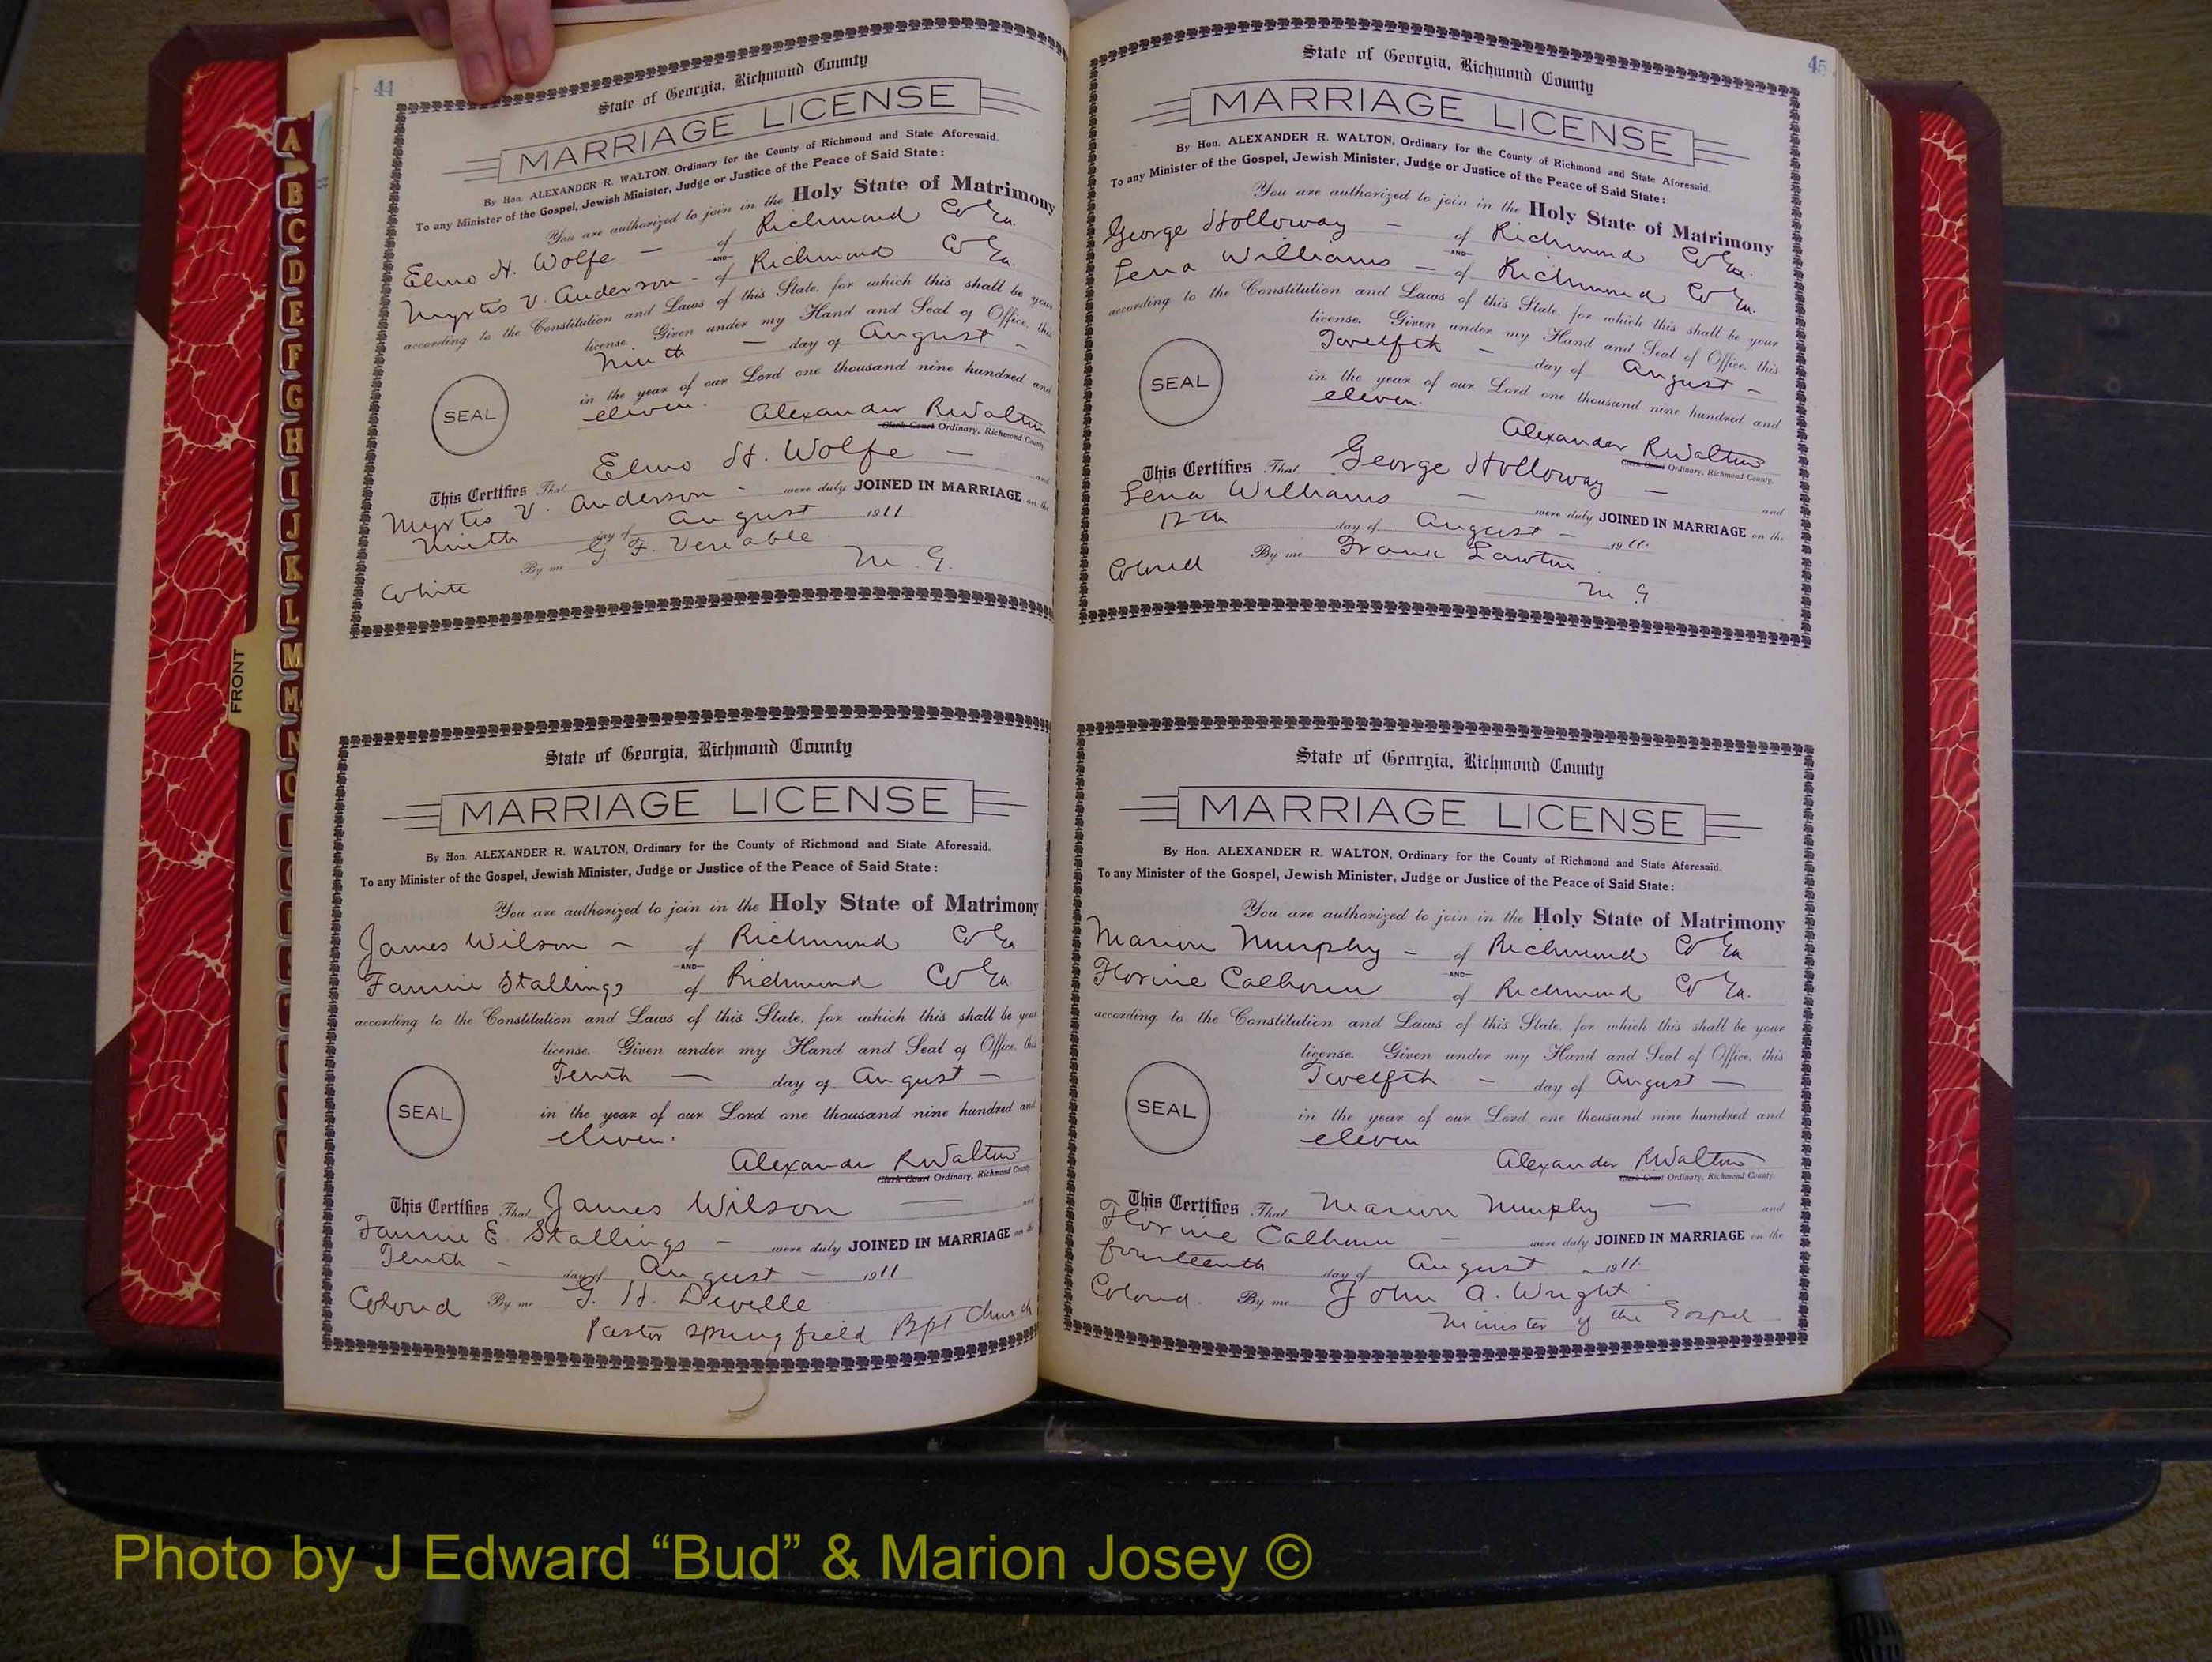 44
State of Georgia, Richmond County
MARRIAGE LICENSE
By Hon. ALEXANDER R. WALTON, Ordinary for the County of Richmond and State Aforesaid.
To any Minister of the Gospel, Jewish Minister, Judge or Justice of the Peace of Said State:
You are authorized to join in the Holy State of Matrimony
Elmo H. Wolfe — of Richmond Co Ga.
AND
Myrtis V. Anderson - of Richmond Co Ga.
according to the Constitution and Laws of this State, for which this shall be your
license. Given under my Hand and Seal of Office, this
Ninth — day of August —
in the year of our Lord one thousand nine hundred and
eleven.
SEAL
Alexander R Walton
Clerk Court Ordinary, Richmond County
This Certifies That Elmo H. Wolfe — and
Myrtis V. Anderson - were duly JOINED IN MARRIAGE on the
Ninth day of August 1911
By me G. F. Veriable
White M. G.
State of Georgia, Richmond County
MARRIAGE LICENSE
By Hon. ALEXANDER R. WALTON, Ordinary for the County of Richmond and State Aforesaid.
To any Minister of the Gospel, Jewish Minister, Judge or Justice of the Peace of Said State:
You are authorized to join in the Holy State of Matrimony
James Wilson — of Richmond Co Ga
AND
Fannie Stallings of Richmond Co Ga.
according to the Constitution and Laws of this State, for which this shall be your
license. Given under my Hand and Seal of Office, this
Tenth — day of August —
in the year of our Lord one thousand nine hundred and
eleven.
SEAL
Alexander R Walton
Clerk Court Ordinary, Richmond County
This Certifies That James Wilson — and
Fannie E. Stallings — were duly JOINED IN MARRIAGE on the
Tenth - day of August — 1911
Colored By me G. H. Deville
Pastor Springfield Bpt Church
45
State of Georgia, Richmond County
MARRIAGE LICENSE
By Hon. ALEXANDER R. WALTON, Ordinary for the County of Richmond and State Aforesaid.
To any Minister of the Gospel, Jewish Minister, Judge or Justice of the Peace of Said State:
You are authorized to join in the Holy State of Matrimony
George Holloway — of Richmond Co Ga.
AND
Lena Williams — of Richmond Co Ga.
according to the Constitution and Laws of this State, for which this shall be your
license. Given under my Hand and Seal of Office, this
Twelfth — day of August —
in the year of our Lord one thousand nine hundred and
eleven.
SEAL
Alexander R Walton
Clerk Court Ordinary, Richmond County.
This Certifies That George Holloway — and
Lena Williams — were duly JOINED IN MARRIAGE on the
12th day of August — 1911.
Colored By me Frank Lawton
M G
State of Georgia, Richmond County
MARRIAGE LICENSE
By Hon. ALEXANDER R. WALTON, Ordinary for the County of Richmond and State Aforesaid.
To any Minister of the Gospel, Jewish Minister, Judge or Justice of the Peace of Said State:
You are authorized to join in the Holy State of Matrimony
Marion Murphy — of Richmond Co Ga
AND
Florine Calhoun of Richmond Co Ga.
according to the Constitution and Laws of this State, for which this shall be your
license. Given under my Hand and Seal of Office, this
Twelfth — day of August —
in the year of our Lord one thousand nine hundred and
eleven
SEAL
Alexander R Walton
Clerk Court Ordinary, Richmond County.
This Certifies That Marion Murphy — and
Florine Calhoun — were duly JOINED IN MARRIAGE on the
fourteenth day of August — 1911.
Colored. By me John A. Wright
Minister of the Gospel
FRONT
A
B
C
D
E
F
G
H
I
J
K
L
M
M
N
Photo by J Edward “Bud” & Marion Josey ©